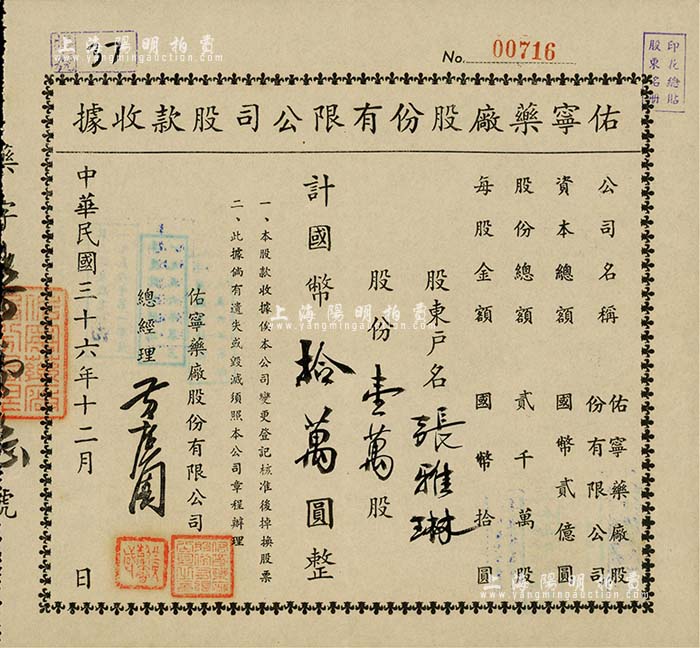 37
No. 00716
印花總貼
股東名冊
佑寧藥廠股份有限公司股款收據
公司名稱 佑寧藥廠股份有限公司
資本總額 國幣貳億圓
股份總額 貳千萬股
每股金額 國幣拾圓
股東戶名 張雅琳
股份壹萬股
計國幣拾萬圓整
一、本股款收據俟本公司變更登記核准後掉換股票
二、此據倘有遺失或毀滅須照本公司章程辦理
佑寧藥廠股份有限公司
總經理
中華民國三十六年十二月 日
藥字
號
上海陽明拍賣
www.yangmingauction.com
上海陽明拍賣
www.yangmingauction.com
上海陽明拍賣
www.yangmingauction.com